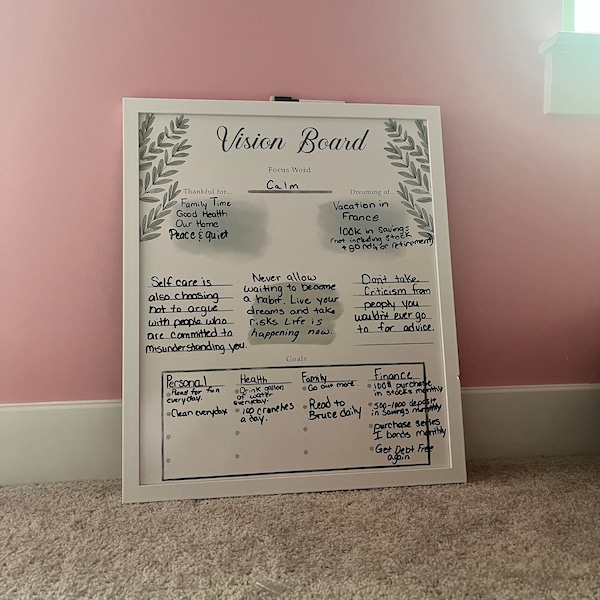 Vision Board
Focus Word
Calm
Thankful for...
Family Time
Good Health
Our Home
Peace & quiet
Dreaming of...
Vacation in
France
100k in savings
(not including stock
+ bonds or retirement)
Self care is
also choosing
not to argue
with people who
are committed to
misunderstanding you.
Never allow
waiting to become
a habit. Live your
dreams and take
risks Life is
happening now.
Don't take
Criticism from
people you
wouldn't ever go
to for advice.
Goals
Personal
Read for fun
everyday.
Clean everyday.
Health
Drink gallon
of water
everyday.
100 crunches
a day.
Family
Go out more
Read to
Bruce daily
Finance
purchase
in stocks monthly
500-1000 deposit
in savings monthly
purchase series
I bonds monthly
Get Debt Free
again